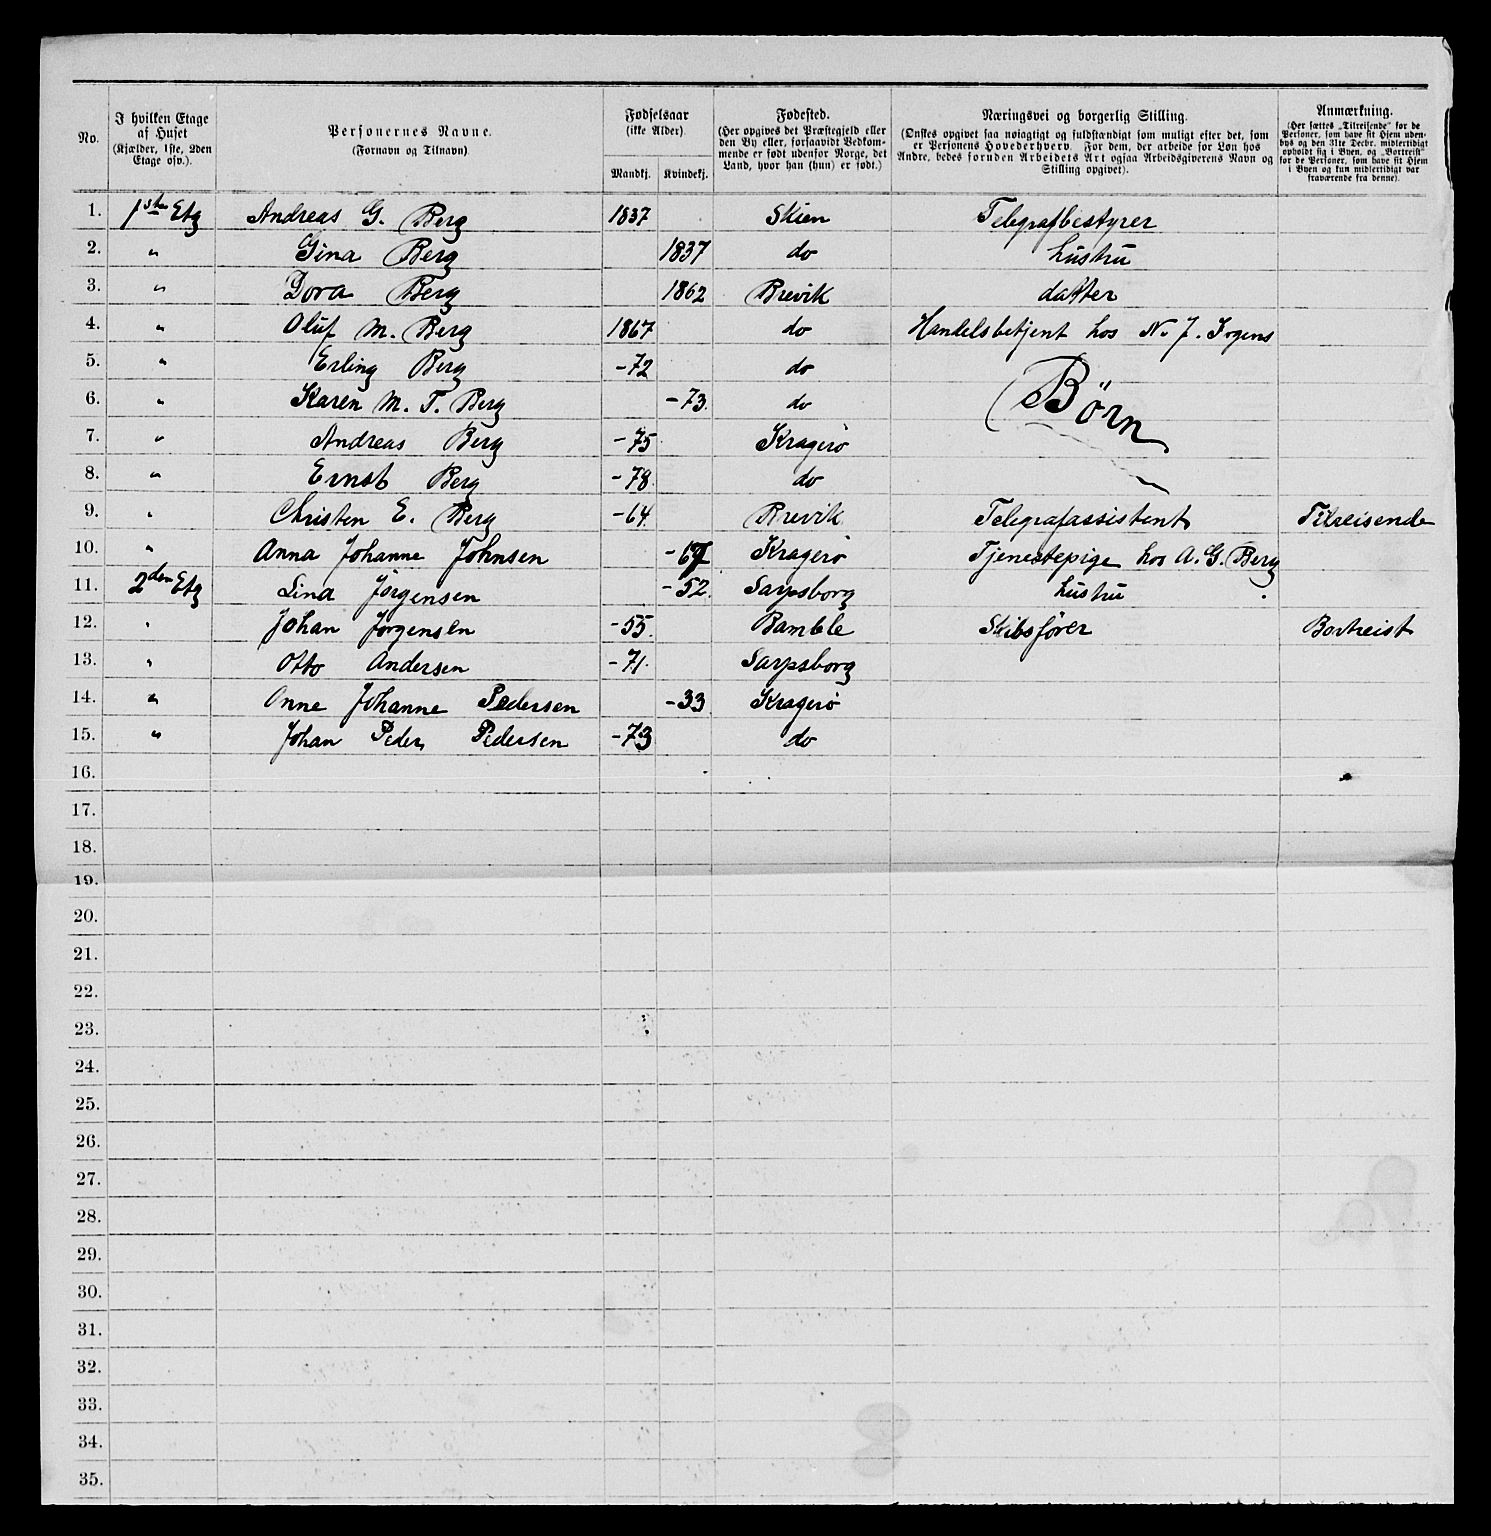 No. | I hvilken Etage af Huset (Kjælder, 1ste, 2den Etage osv.). | Personernes Navne. (Fornavn og Tilnavn). | Fødselsaar (ikke Alder) Mandkj. | Kvindekj. | Fødested. (Her opgives det Præstegjeld eller den By eller, forsaavidt Vedkommende er født udenfor Norge, det Land, hvor han (hun) er født.) | Næringsvei og borgerlig Stilling. (Ønskes opgivet saa nøiagtigt og fuldstændigt som muligt efter det, som er Personens Hovederhverv. For dem, der arbeide for Løn hos Andre, bedes foruden Arbeidets Art ogsaa Arbeidsgiverens Navn og Stilling opgivet). | Anmærkning. (Her sættes „Tilreisende“ for de Personer, som have sit Hjem udenbys og den 31te Decbr. midlertidigt opholdt sig i Byen, og „Bortreist“ for de Personer, som have sit Hjem i Byen og kun midlertidigt var fraværende fra denne).
1. | 1ste Etg | Andreas G. Berg | 1837 | | Skien | Telegrafbestyrer
2. | " | Gina Berg | | 1837 | do | hustru
3. | " | Dora Berg | | 1862 | Brevik | datter
4. | " | Oluf M. Berg | 1867 | | do | Handelsbetjent hos N. J.
5. | " | Erling Berg | -72 | | do | Børn
6. | " | Karen M. T. Berg | | -73. | do
7. | " | Andreas Berg | -75 | | Kragerö
8. | " | Ernst Berg | -78 | | do
9. | " | Christen E. Berg | -64 | | Brevik | Telegrafassistent | Tilreisende
10. | " | Anna Johanne Johnsen | | -67 | Kragerö | Tjenestepige hos A. G. Berg
11. | 2den Etg | Lina Jørgensen | | -52. | Sarpsborg | hustru
12. | " | Johan Jørgensen | -55. | | Bamble | Skibsfører | Bortreist
13. | " | Otto Andersen | -71. | | Sarpsborg
14. | " | Anne Johanne Pedersen | | -33 | Kragerö
15. | " | Johan Peder Pedersen | -73 | | do
16.
17.
18.
19.
20.
21.
22.
23.
24.
25.
26.
27.
28.
29.
30.
31.
32.
33.
34.
35.